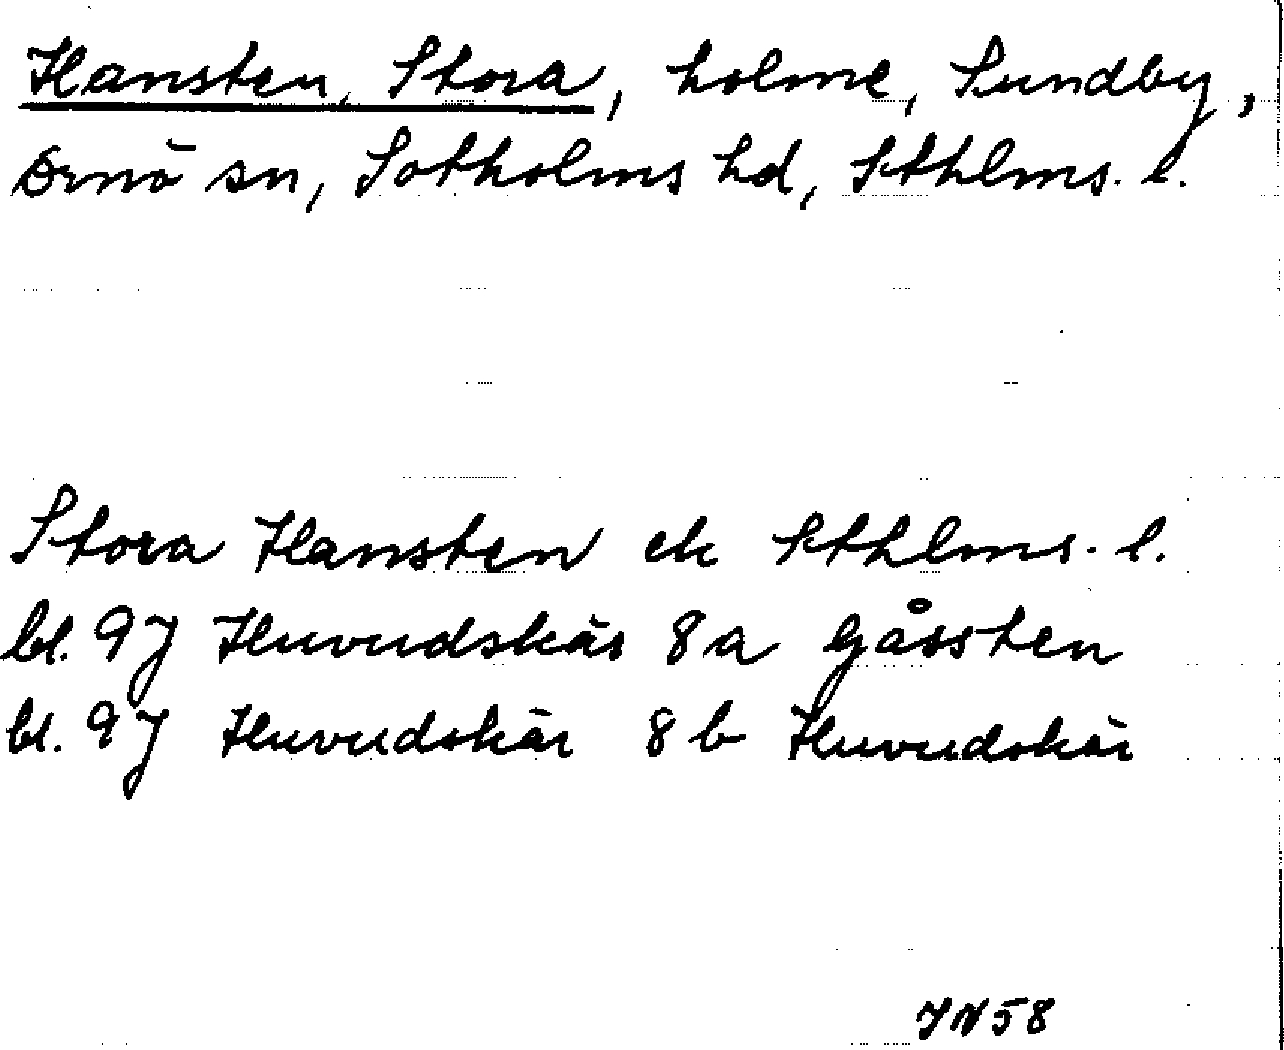 Hansten, Stora, holme, Sundby,
Ornö sn, Sotholms hd, Sthlms. l.
Stora Hansten ek Sthlms. l.
bl. 9J Huvudskär 8a Gåssten
bl. 9J Huvudskär 8b Huvudskär
JN58